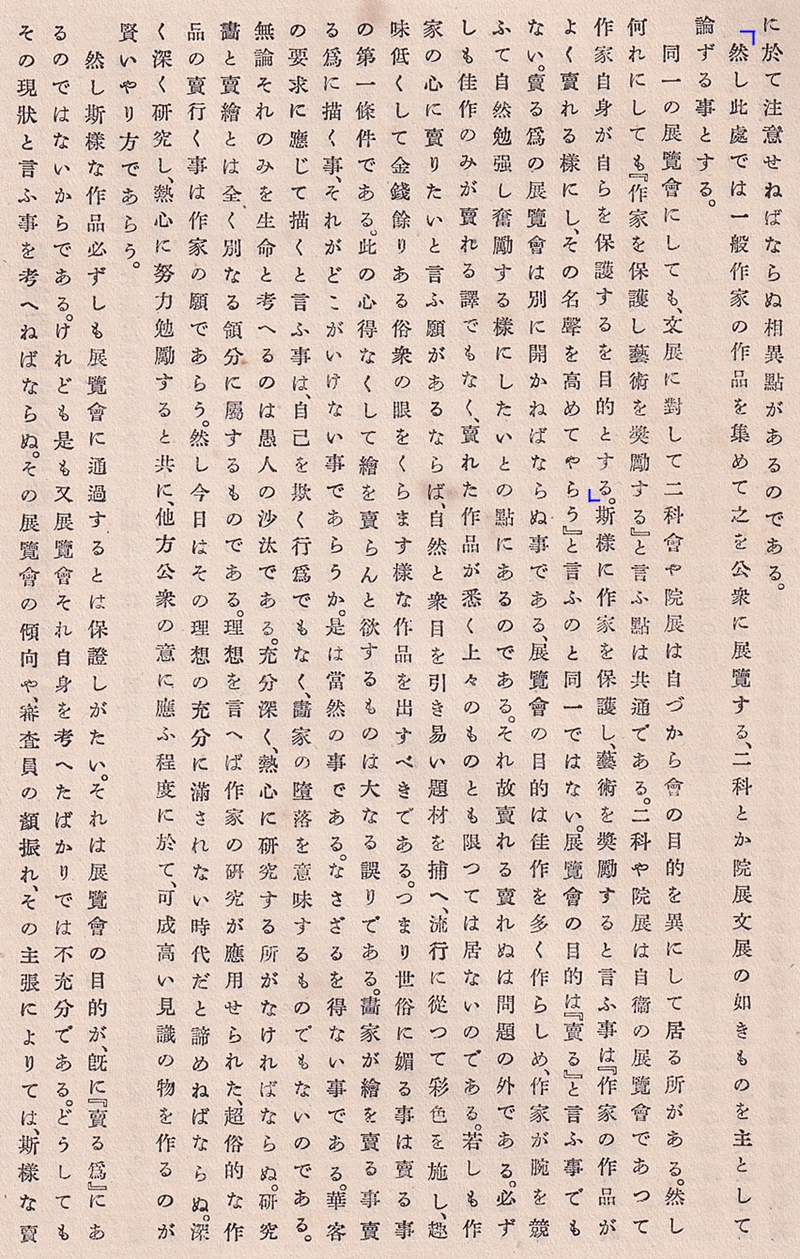 に於て注意せねばならぬ相異點があるのである。
然し此處では一般作家の作品を集めて之を公衆に展覽する、二科とか院展文展の如きものを主として
論ずる事とする。
同一の展覽會にしても、文展に對して二科會や院展は自づから會の目的を異にして居る所がある。然し
何れにしても『作家を保護し藝術を奬勵する』と言ふ點は共通である。二科や院展は自衞の展覽會であつて
作家自身が自らを保護するを目的とする。斯樣に作家を保護し、藝術を奬勵すると言ふ事は『作家の作品が
よく賣れる樣にし、その名聲を高めてやらう』と言ふのと同一ではない。展覽會の目的は『賣る』と言ふ事でも
ない。賣る爲の展覽會は別に開かねばならぬ事である、展覽會の目的は佳作を多く作らしめ、作家が腕を競
ふて自然勉强し奮勵する樣にしたいとの點にあるのである。それ故賣れる賣れぬは問題の外である。必ず
しも佳作のみが賣れる譯でもなく、賣れた作品が悉く上々のものとも限つては居ないのである。若しも作
家の心に賣りたいと言ふ願があるならば、自然と衆目を引き易い題材を捕へ、流行に從つて彩色を施し、趣
味低くして金錢餘りある俗衆の眼をくらます樣な作品を出すべきである。つまり世俗に媚る事は賣る事
の第一條件である。此の心得なくして繪を賣らんと欲するものは大なる誤りである。畵家が繪を賣る事賣
る爲に描く事、それがどこがいけない事であらうか。是は當然の事である。なさざるを得ない事である。華客
の要求に應じて描くと言ふ事は、自己を欺く行爲でもなく、畵家の墮落を意味するものでもないのである。
無論それのみを生命と考へるのは愚人の沙汰である。充分深く、熱心に研究する所がなければならぬ。研究
畵と賣繪とは全く別なる領分に屬するものである。理想を言へば作家の研究が應用せられた、超俗的な作
品の賣行く事は作家の願であらう。然し今日はその理想の充分に滿されない時代だと諦めねばならぬ。深
く深く研究し、熱心に努力勉勵すると共に、他方公衆の意に應ふ程度に於て、可成高い見識の物を作るのが
賢いやり方であらう。
然し斯樣な作品必ずしも展覽會に通過するとは保證しがたい。それは展覽會の目的が、旣に『賣る爲』にあ
るのではないからである。けれども是も又展覽會それ自身を考へたばかりでは不充分である。どうしても
その現狀と言ふ事を考へねばならぬ。その展覽會の傾向や、審査員の顏振れ、その主張によりては、斯樣な賣